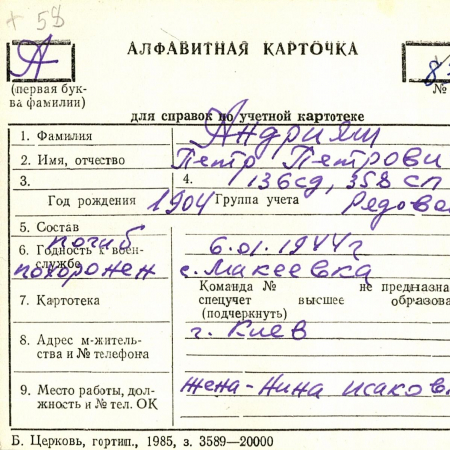 + 58
А
АЛФАВИТНАЯ КАРТОЧКА
8
(первая бук-
ва фамилии)
№
для справок по учетной картотеке
1. Фамилия Андрияш
2. Имя, отчество Петр Петрови
3. 4. 136сд, 358 сп
Год рождения 1904 Группа учета Рядово
5. Состав
погиб 6.01.1944г
6. Годность к воен-
службе
похоронен с. Макеевка
7. Картотека Команда № не предназна
спецучет высшее образова
(подчеркнуть)
8. Адрес м-житель-
ства и № телефона г. Киев
9. Место работы, дол-
жность и № тел. ОК жена - Нина Исаков
Б. Церковь, гортип., 1985, з. 3589—20000